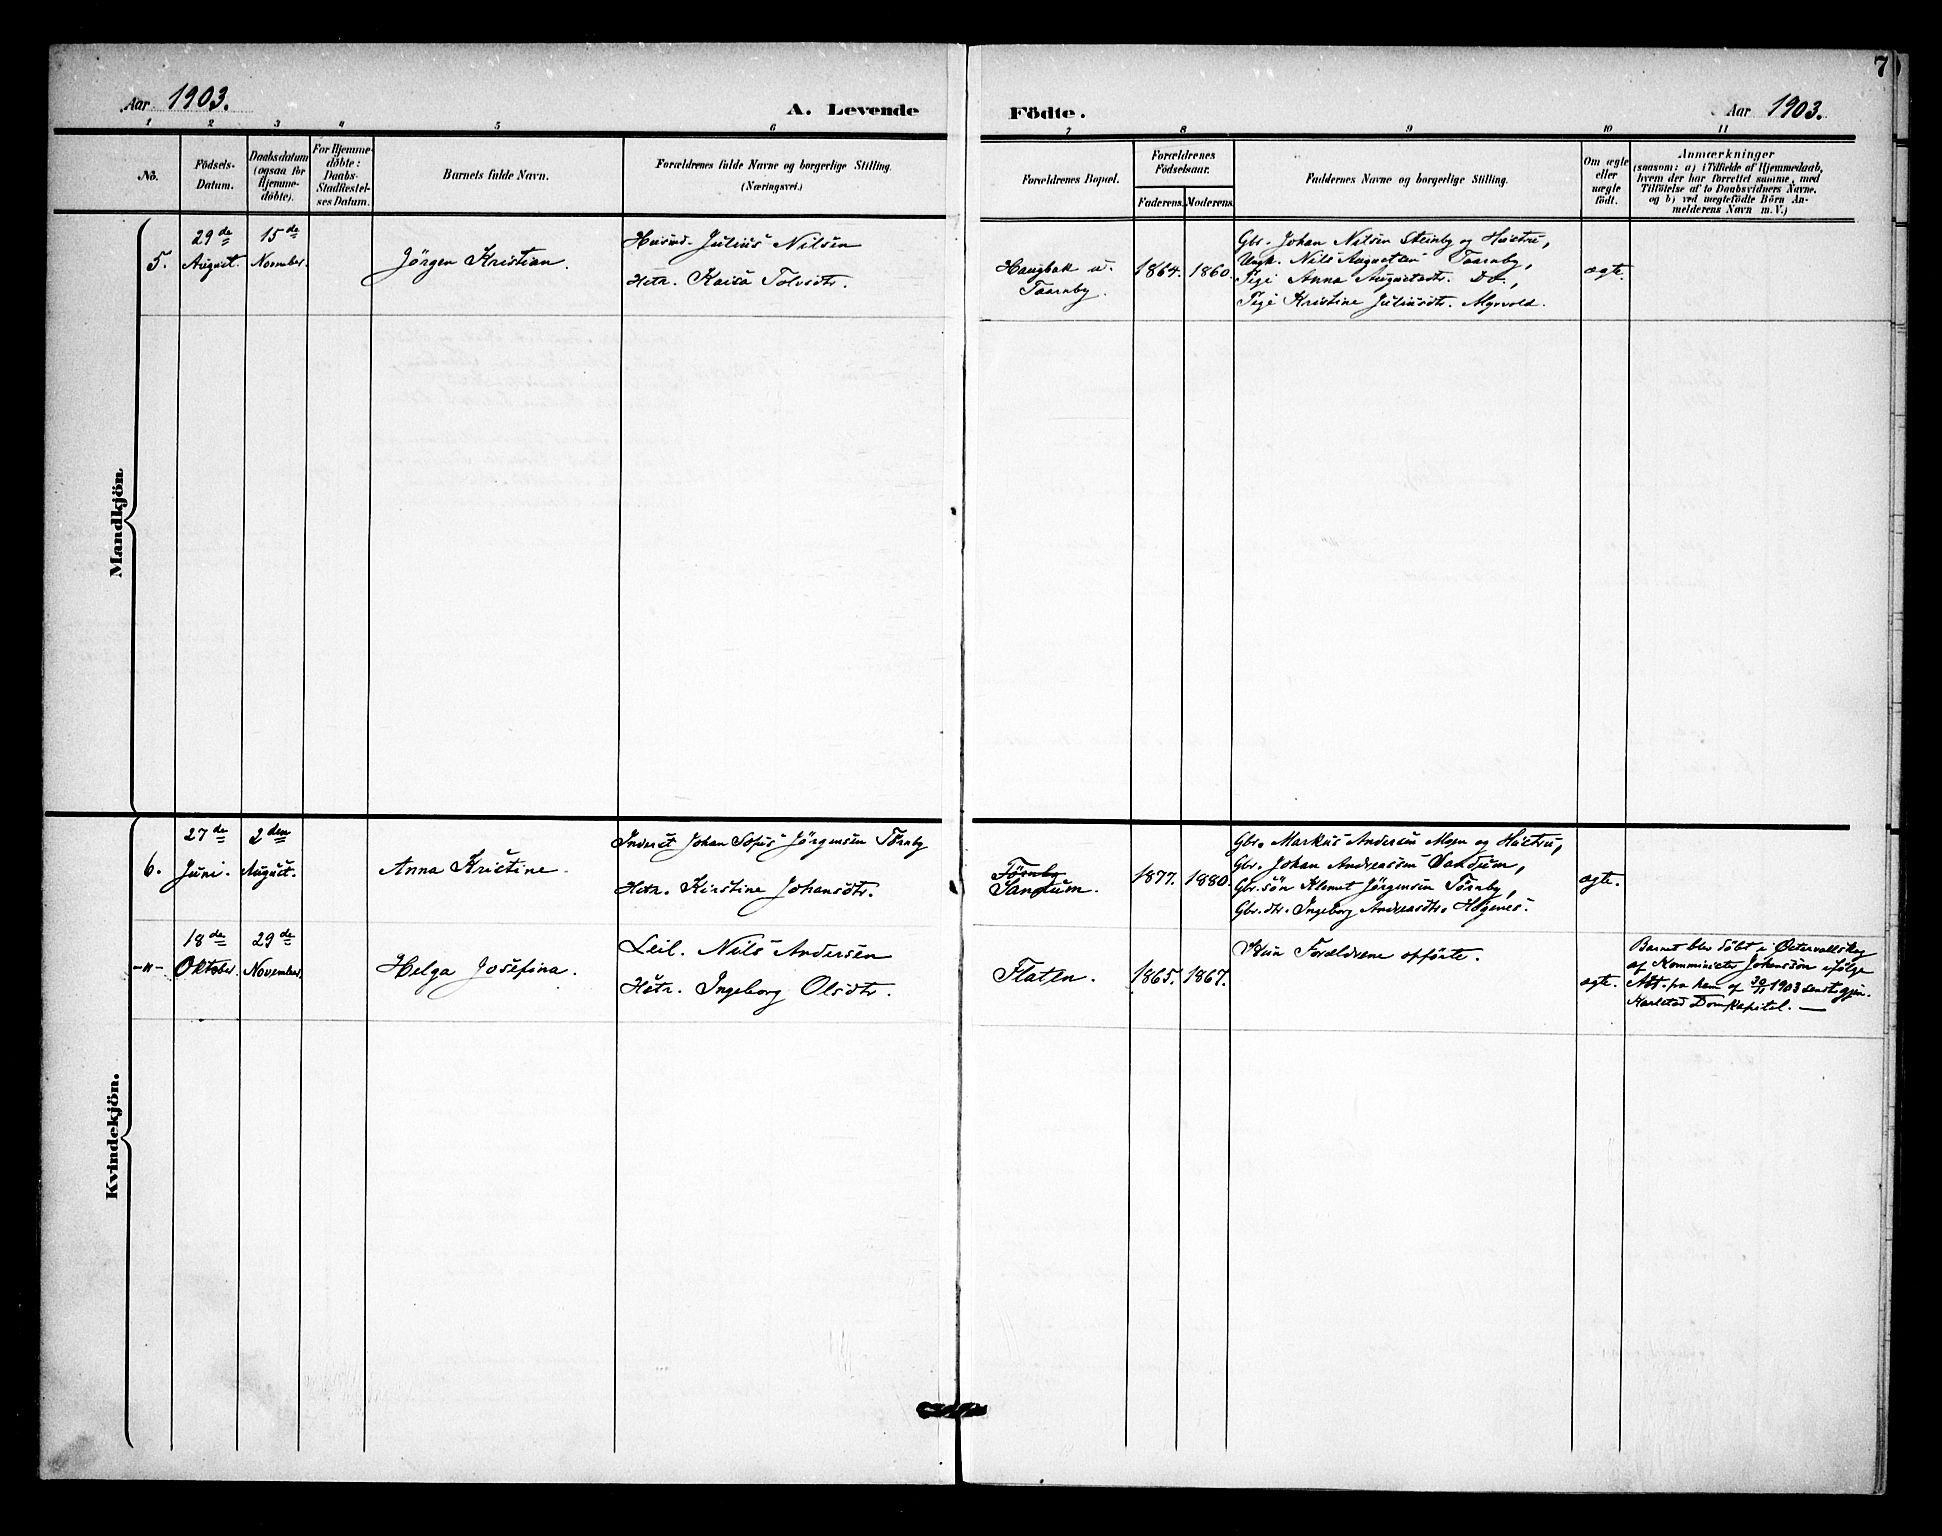 7
Aar 1903.
A. Levende
Födte.
Aar 1903.
1 2 3 4 5 6 7 8 9 10 11
No.
Födsels-
Datum.
Daabsdatum
(ogsaa for
Hjemme-
döbte).
For Hjemme-
döbte:
Daabs-
Stadfæstel-
ses Datum.
Barnets fulde Navn.
Forældrenes fulde Navne og borgerlige Stilling.
(Næringsvei.)
Forældrenes Bopæl.
Forældrenes
Födselsaar.
Faderens. Moderens.
Faddernes Navne og borgerlige Stilling.
Om ægte
eller
uægte
født.
Anmærkninger
(saasom: a) i Tilfælde af Hjemmedaab,
hvem der har forrettet samme, med
Tilföielse af to Daabsvidners Navne.
og b) ved uægtefödte Börn An-
melderens Navn m. V.)
Mandkjön
5.
29de
August.
15de
November.
Jörgen Kristian.
Husmd. Julius Nilsen
Hstr. Kaisa Tolvsdtr.
Haugbak u.
Taarnby.
1864.
1860.
Gbr. Johan Nilsen Steinby og Hustru,
Ungk. Nils Augustsen Taarnby,
Pige Anna Augustsdtr. Do.,
Pige Kristine Juliusdtr. Myrvold.
ægte.
Kvindekjön.
6.
27de
Juni.
2den
August.
Anna Kristine.
Inderst Johan Sofus Jörgensen Törnby
Hstr. Kirstine Johansdtr.
Törnby
Sandum.
1877.
1880.
Gbr. Markus Andersen Moen og Hustru,
Gbr. Johan Andreassen Sandum,
Gbr.sön Klemet Jörgensen Törnby,
Gbr.dtr. Ingeborg Andreasdtr. Högenes.
ægte.
-"-
18de
Oktober.
29de
November.
Helga Josefina.
Leil. Nils Andersen
Hstr. Ingeborg Olsdtr.
Flaten.
1865.
1867.
Kun Forældrene opförte.
ægte.
Barnet blev döbt i Östervallskog
af Komminister Johansson ifölge
Att. fra ham af 30/11 1903 sendt gjen.
Karlstad Domkapitel. —